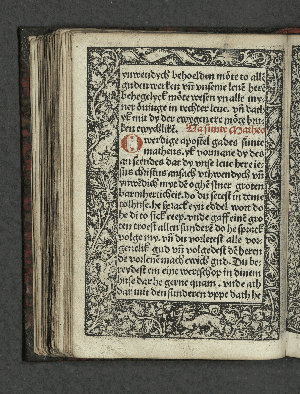 ynwendych behoelden möte to alle
guden werken vñ vnseme leuē here
behegelyck möte wesen yn alle my-
ner öuinge in rechter leue. vñ dath
yk mit dy der ewygen ere möte bru-
ken ewychlikē. Va sunte Matheo
O werdige apostel gades sunte
matheus. yk vormane dy des
an seendes dar dy vnse leue here ie-
sus christus ansach vthwendych vñ
ynwēdich myt dē oghē syner groten
barmherticheit. do du setest in deme
tolhuse. he sprack eyn eddel wort do
he di to sick reep. vnde gaff eine gro-
ten troest allen sunderē do he sprack
volge my. vñ du vorletest alle vor-
genclik gud vñ volgedest dē heren
de vorlene mach ewich gud. Du be-
reydest em eine wertschop in dinem
huse dar he gerne quam. vnde ath
dar mit den sunderen vppe dath he